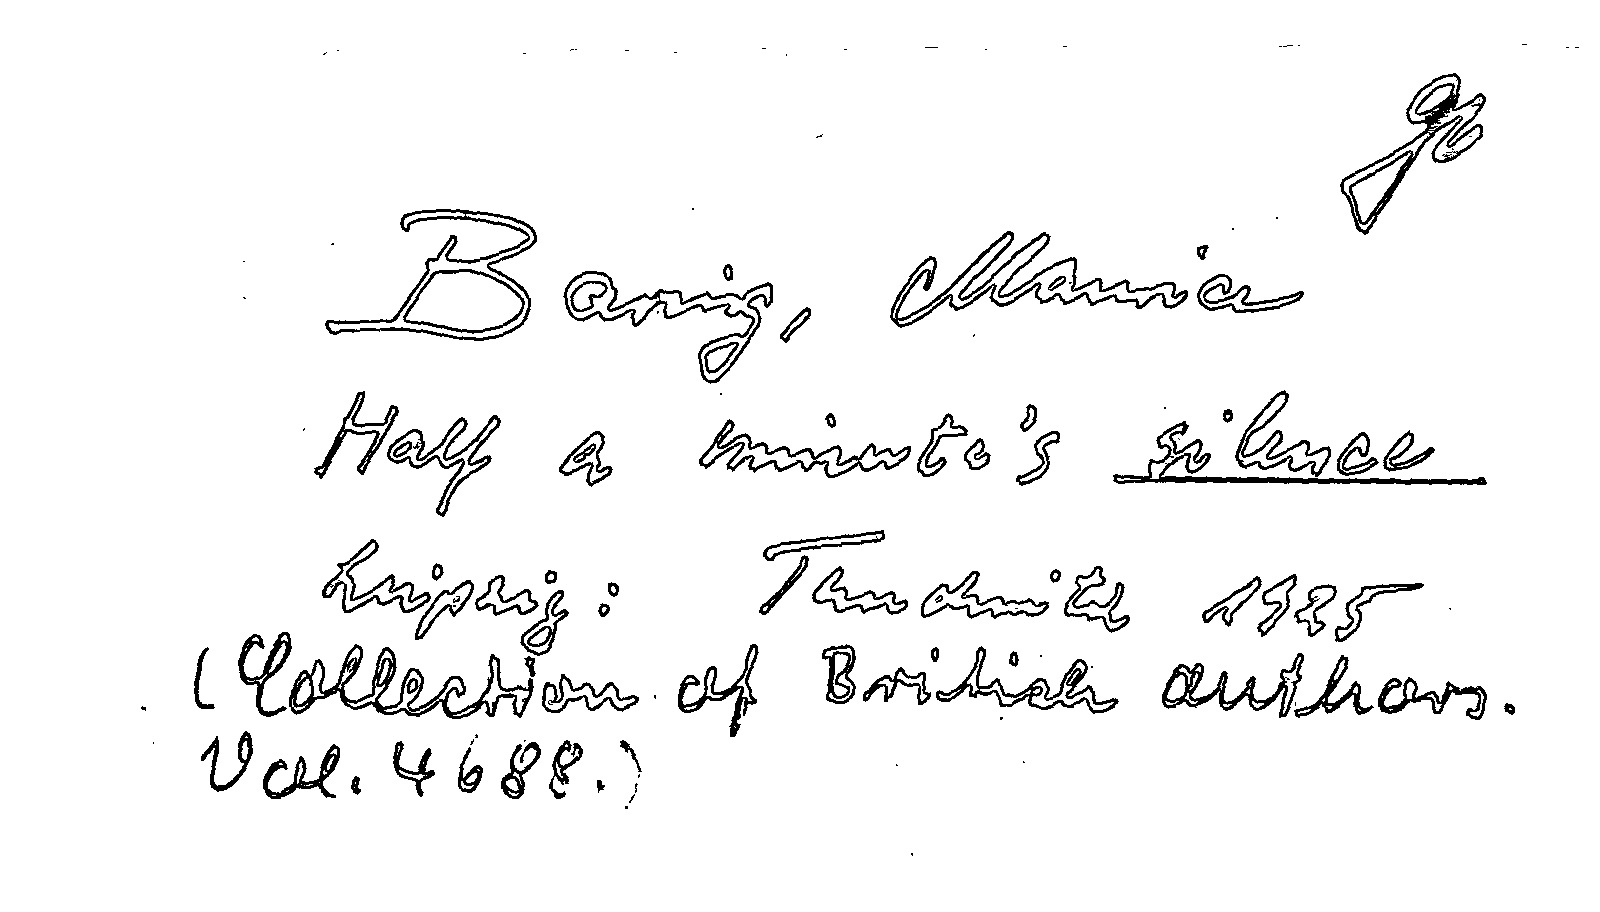 Baring, Maurice
Half a minute's silence
Leipzig: Tauchnitz 1925
(Collection of British authors.
Vol. 4688.)